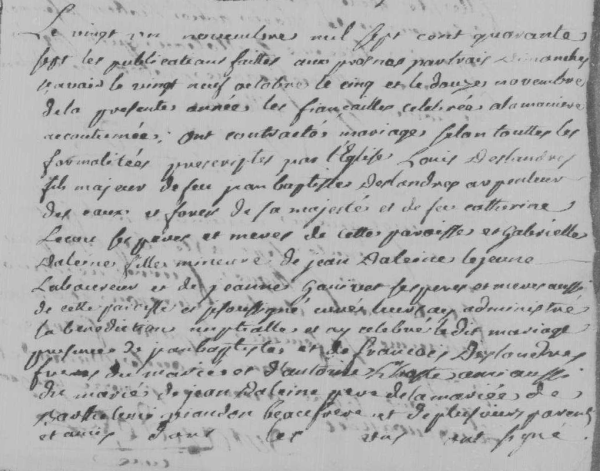 Le vingt un novembre mil sept cent quarante
sept les publications faittes aux prosnes par trois dimanches
scavoir le vingt neuf octobre le cinq et le douze novembre
de la presente année les fiançailles celebrées a la maniere
accoutumée, ont contractés mariage selon touttes les
formalitées prescriptes par l'Eglise Louis Deslandres
fils majeur de feu jean baptiste Deslandres arpenteur
des eaux et forets de sa majesté et de feu catherine
ses peres et meres de cette paroisse et Gabrielle
Daleine fille mineure de jean Daleine lejeune
Laboureur et de jeanne ses peres et meres aussi
de cette paroisse et je soussigné curé leur ay administré
la benediction nuptialle et ay celebré ledit mariage
presence de jean baptiste et de francois Deslandres
freres du marié et d'antoine ami aussi
du marié de jean Daleine pere de la mariée de
beaufrere et de plusieurs parents
et amis dont les uns ont signé.